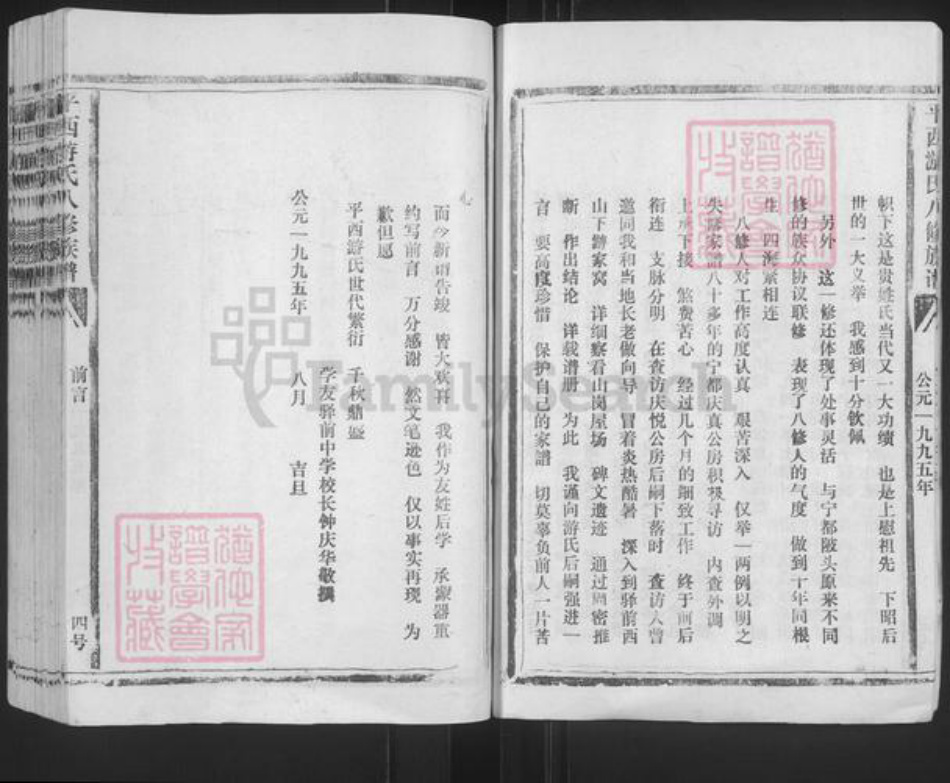 平西游氏八修族谱
公元一九九五年
帜下这是贵姓氏当代又一大功绩 也是上慰祖先 下昭后
世的一大义举 我感到十分钦佩
另外 这一修还体现了处事灵活 与宁都陂头原来不同
修的族众协议联修 表现了八修人的气度 做到十年同根
生 四海紧相连
八修人对工作高度认真 艰苦深入 仅举一两例以明之
失 家谱八十多年的宁都庆真公房积极寻访 内查外调
上承下接 煞费苦心 经过几个月的细致工作 终于前后
衔连 支脉分明 在查访庆悦公房后嗣下落时 查访人曾
邀同我和当地长老做向导 冒着炎热酷暑 深入到驿前西
山下 家窝 详细察看山岗屋场 碑文遗迹 通过周密推
断 作出结论 详载谱册 为此 我谨向游氏后嗣强进一
言 要高度珍惜 保护自己的家譜 切莫辜负前人一片苦
心
而今新谱告竣 皆大欢喜 我作为友姓后学 承蒙器重
约写前言 万分感谢 然文笔逊色 仅以事实再现 为
歉但愿
平西游氏世代繁衍 千秋鼎盛
学友驿前中学校长钟庆华敬撰
公元一九九五年 八月 吉旦
平西游氏八修族谱
前言
四号
譜學會
收藏
譜學會
收藏
FamilySearch